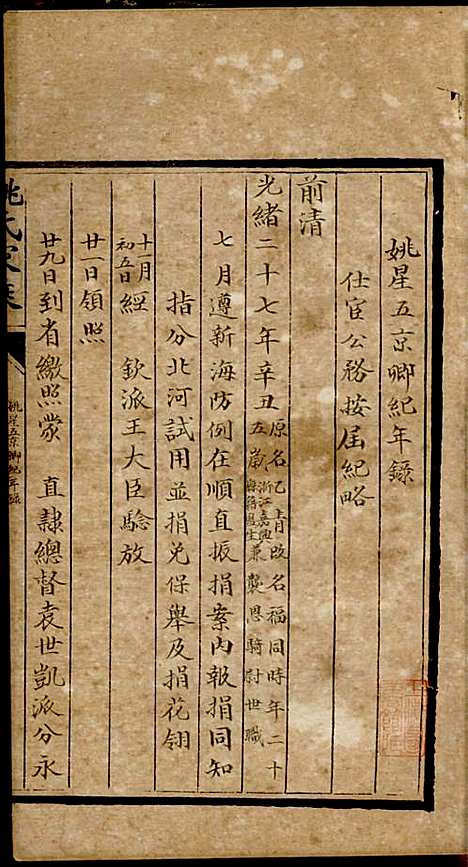 姚星五京卿紀年錄
仕宦公務按屆紀略
前清
光緒二十七年辛丑原名乙青改名福同時年二十
五歲浙江嘉興兼襲恩騎尉世職
七月遵新海防例在順直振捐案內報捐同知
指分北河試用並捐免保舉及捐花翎
十一月
初五日經 欽派王大臣驗放
廿一日領照
廿九日到省繳照蒙 直隸總督袁世凱派分永
姚氏家
姚星五京卿紀年錄